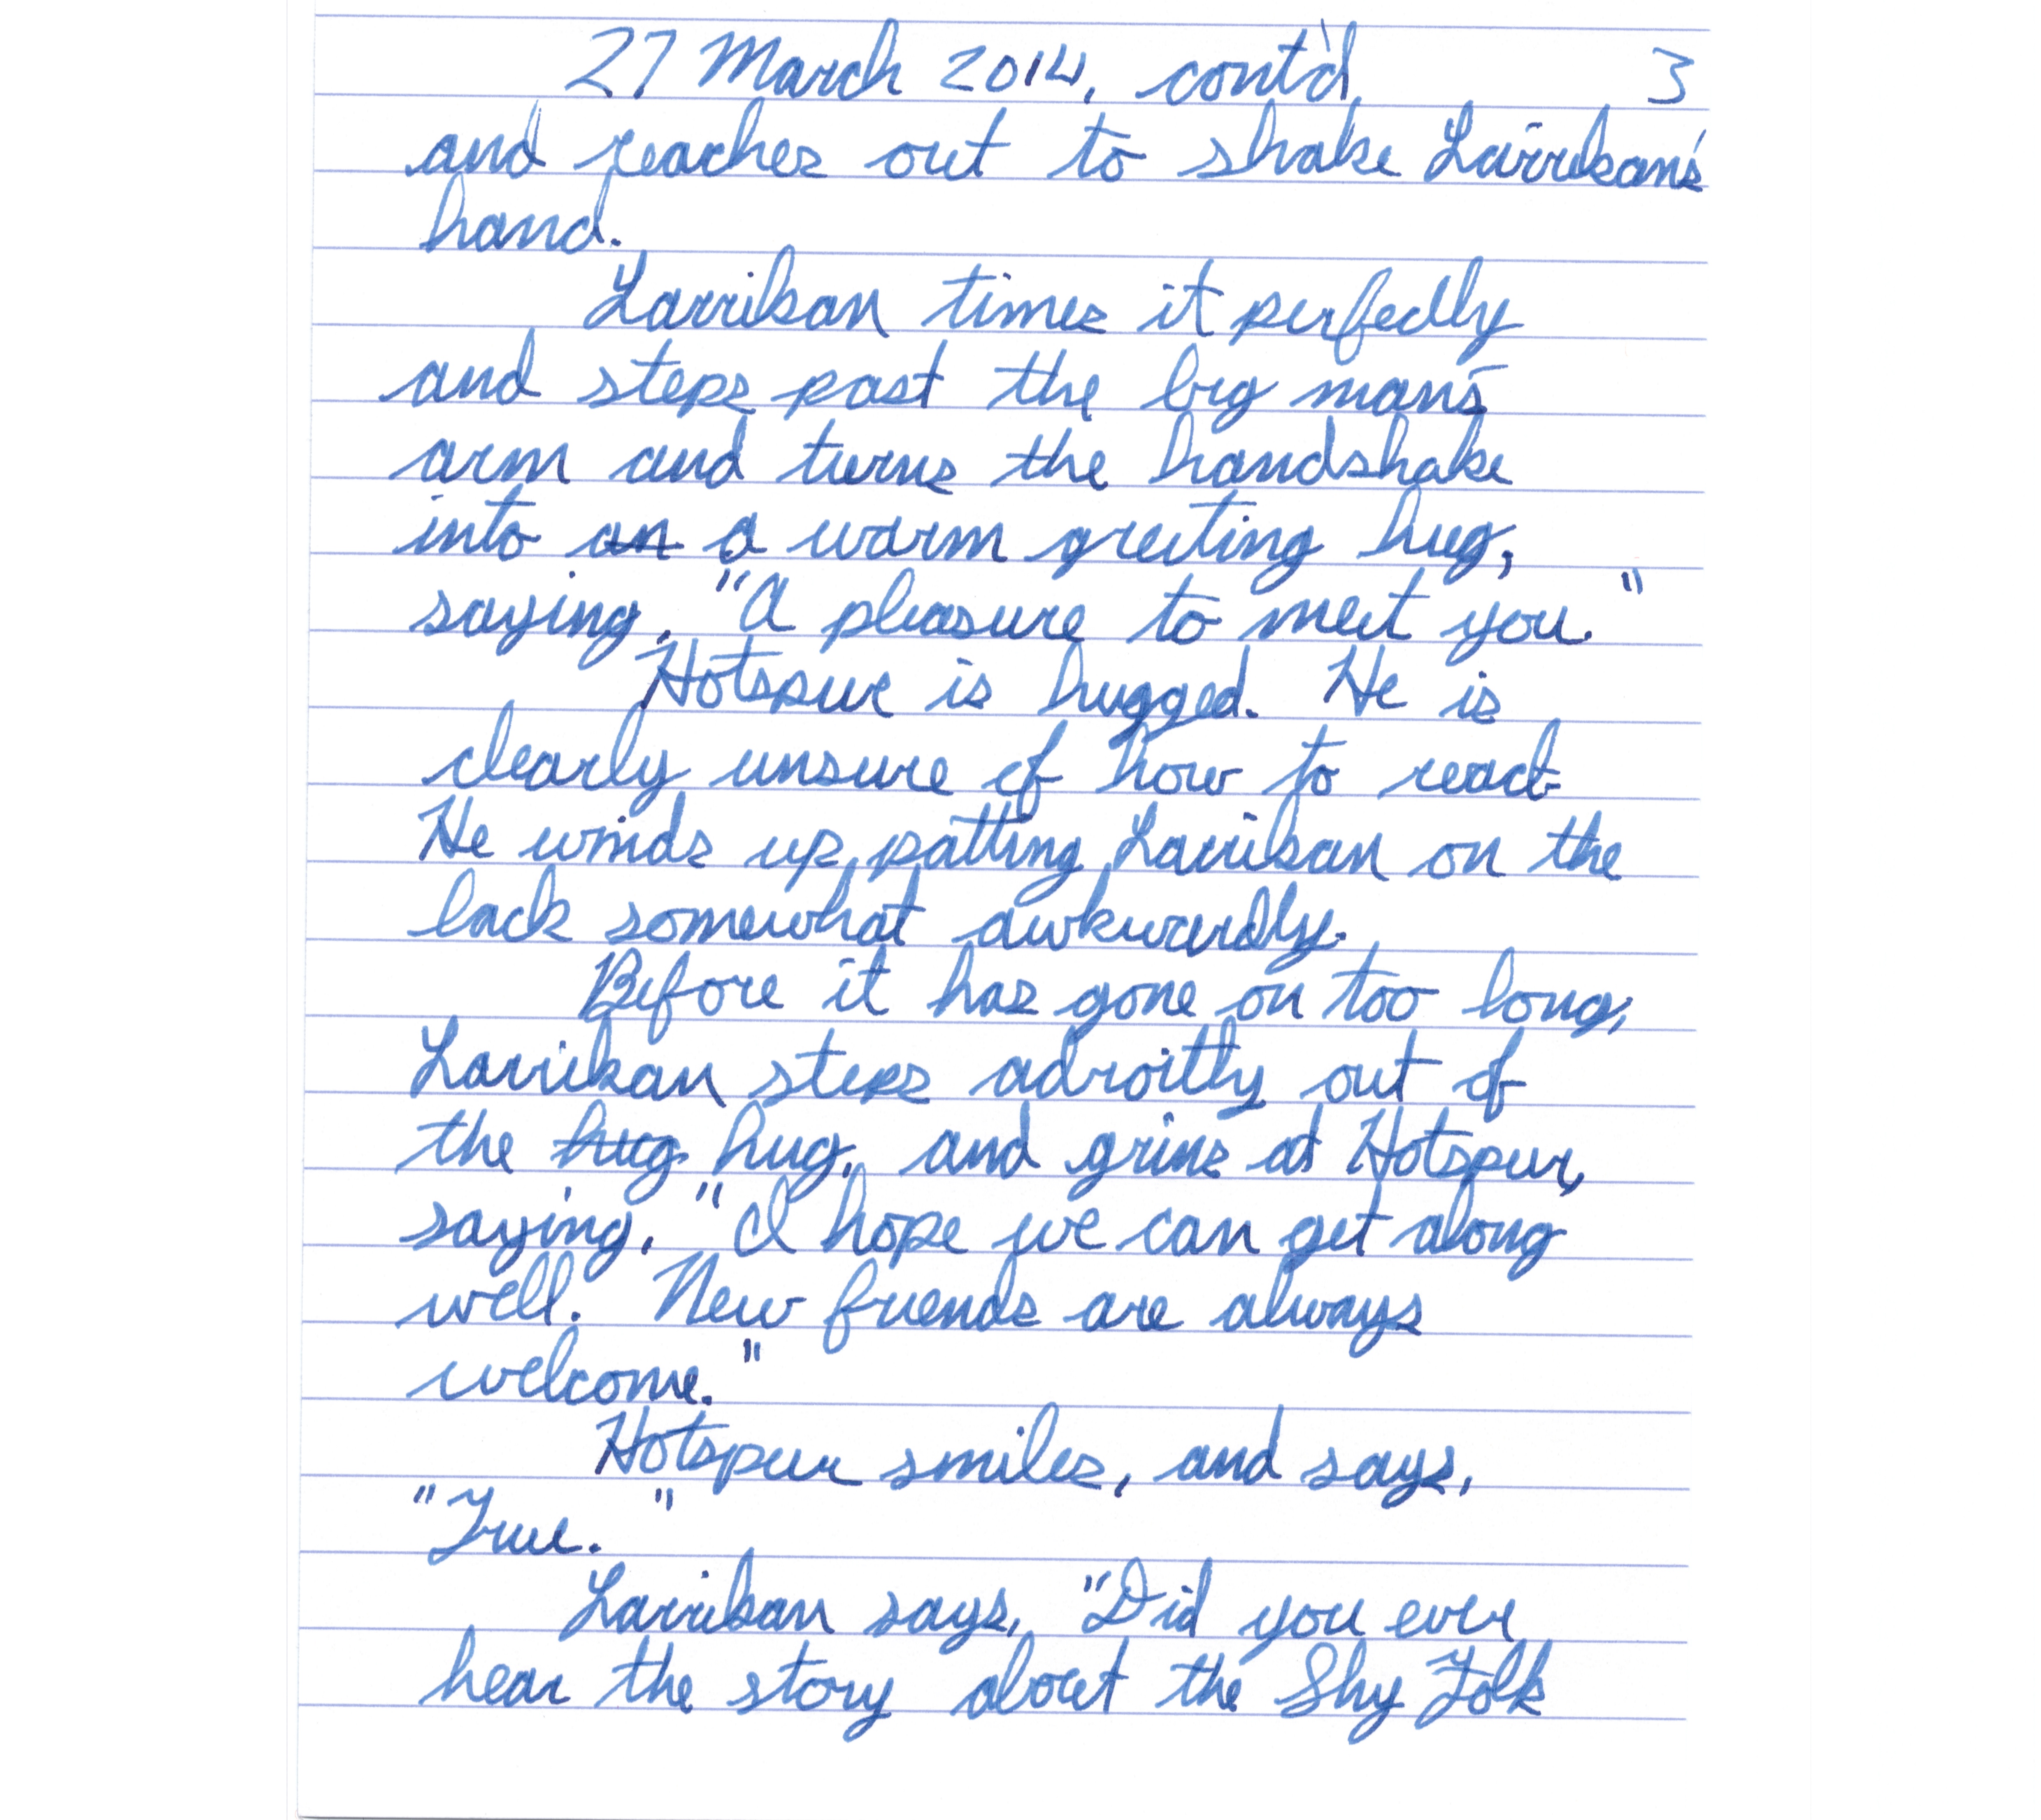 27 March 2014, cont'd 3
and reaches out to shake Larrikan's
hand.
Larrikan times it perfectly
and steps past the big man's
arm and turns the handshake
into an a warm greeting hug,
saying, "A pleasure to meet you."
Hotspur is hugged. He is
clearly unsure of how to react
He winds up patting Larrikan on the
back somewhat awkwardly.
Before it has gone on too long,
Larrikan steps adroitly out of
the hug hug, and grins at Hotspur,
saying, "I hope we can get along
well. New friends are always
welcome."
Hotspur smiles, and says,
"True."
Larrikan says, "Did you ever
hear the story about the Shy Folk